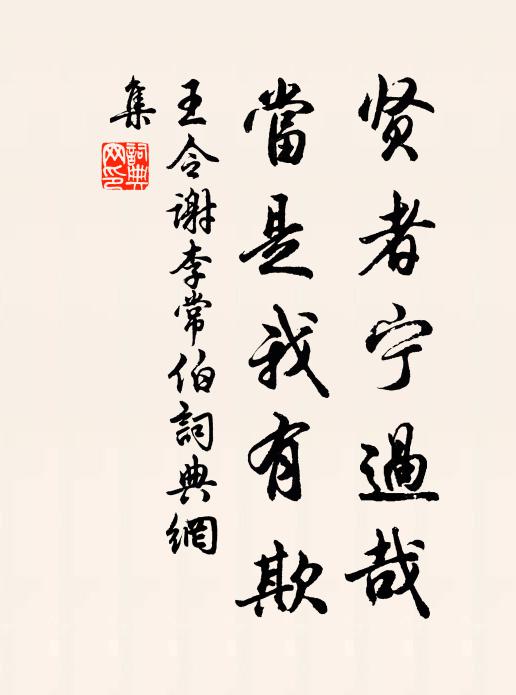 贤者宁過哉
當是我有欺
王令謝李常伯詞典網
集
詞典
网印